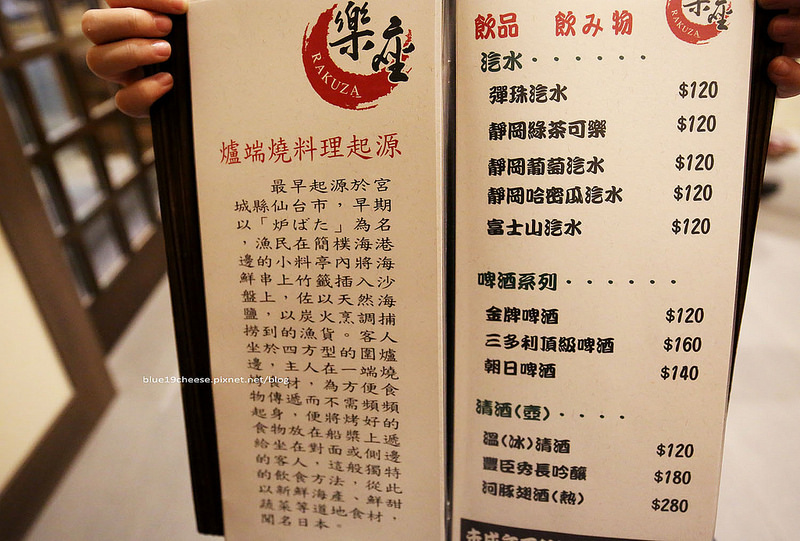 樂座
RAKUZA
爐端燒料理起源
最早起源於宮
城縣仙台市，早期
以「炉ばた」為名
，漁民在簡樸海港
邊的小料亭內將海
鮮串上竹籤插入沙
盤上，佐以天然海
鹽，以炭火烹調捕
撈到的漁貨。客人
坐於四方型的圍爐
邊，主人在一端燒
食材，為方便食
物傳遞而不需頻頻
起身，便將烤好的
食物放在船槳上遞
給坐在對面或側邊
的客人，這般獨特
的飲食方法，從此
以新鮮海產、鮮甜
蔬菜等道地食材，
聞名日本。
blue19cheese.pixnet.net/blog
樂座
RAKUZA
飲品 飲み物
汽水······
彈珠汽水 $120
靜岡綠茶可樂 $120
靜岡葡萄汽水 $120
靜岡哈密瓜汽水 $120
富士山汽水 $120
啤酒系列······
金牌啤酒 $120
三多利頂級啤酒 $160
朝日啤酒 $140
清酒(壺)····
溫(冰)清酒 $120
豐臣秀長吟釀 $180
河豚翅酒(熱) $280